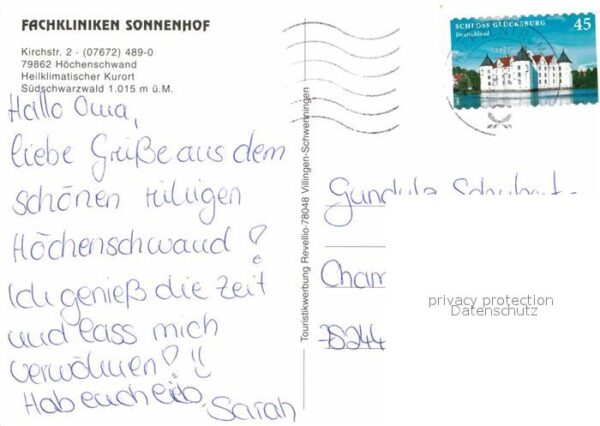 FACHKLINIKEN SONNENHOF
Kirchstr. 2 · (07672) 489-0
79862 Höchenschwand
Heilklimatischer Kurort
Südschwarzwald 1.015 m ü.M.
Hallo Oma,
liebe Grüße aus dem
schönen hüligen
Höchenschwand!
Ich genieß die Zeit
und lass mich
verwöhnen!!!
Hab euch lieb. Sarah
Touristikwerbung Revellio-78048 Villingen-Schwenningen
SCHLOSS GLÜCKSBURG 45
Deutschland
Gundula
Cham
75244
privacy protection
Datenschutz